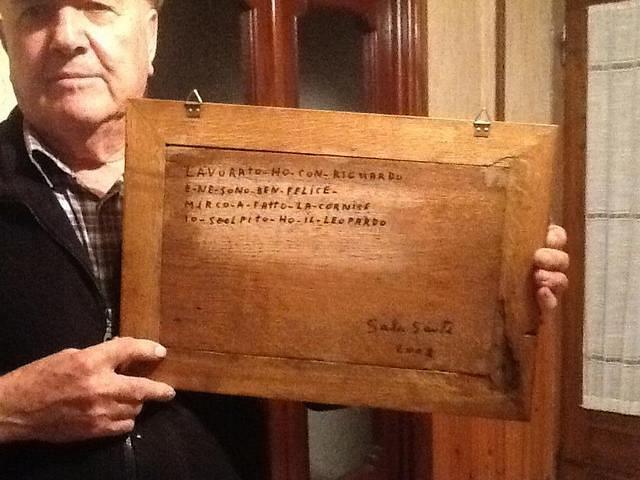 LAVORATO-HO-CON-RIGUARDO
E-NE-SONO-BEN-FELICE-
MIRCO-A-FATTO-LA-CORNICE
IO-SCOLPITO-HO-IL-LEOPARDO
Sala Sante
2002